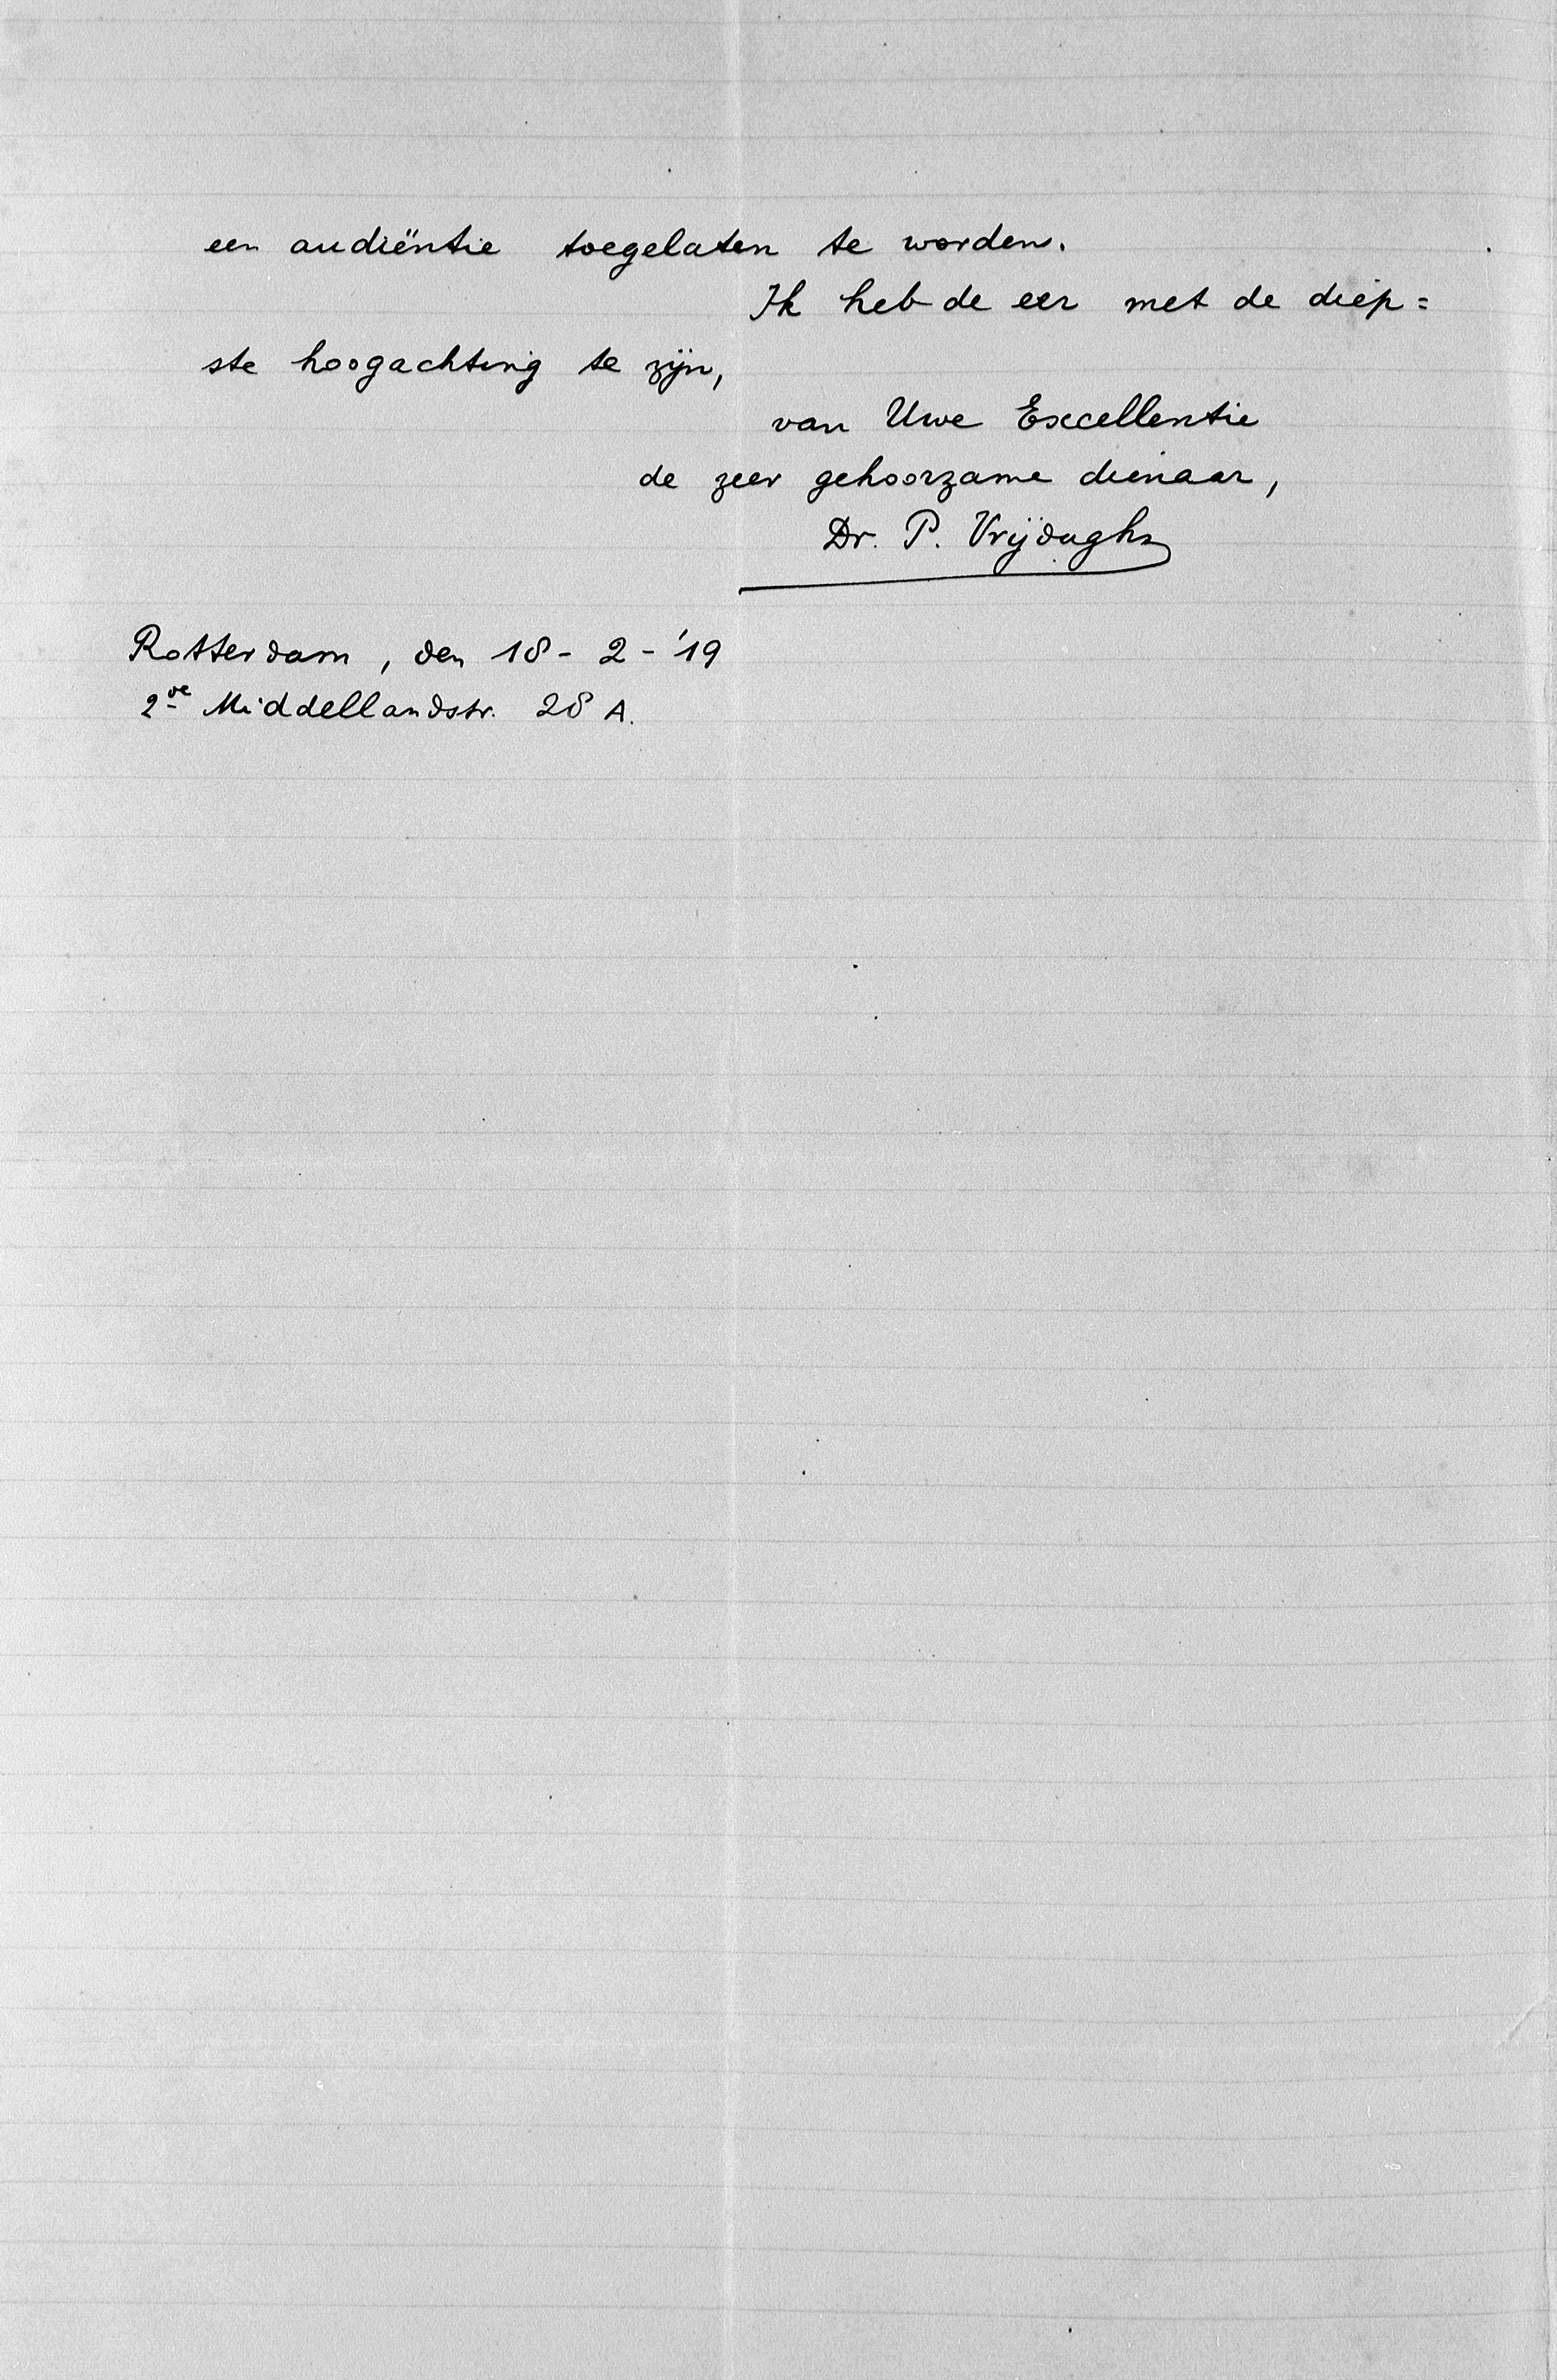 een audiëntie toegelaten te worden.
Ik heb de eer met de diep=
ste hoogachting te zijn,
van Uwe Excellentie
de zeer gehoorzame dienaar,
Dr. P. Vrijdaghs
Rotterdam, den 18 - 2 - '19
2de Middellandstr. 28 A.